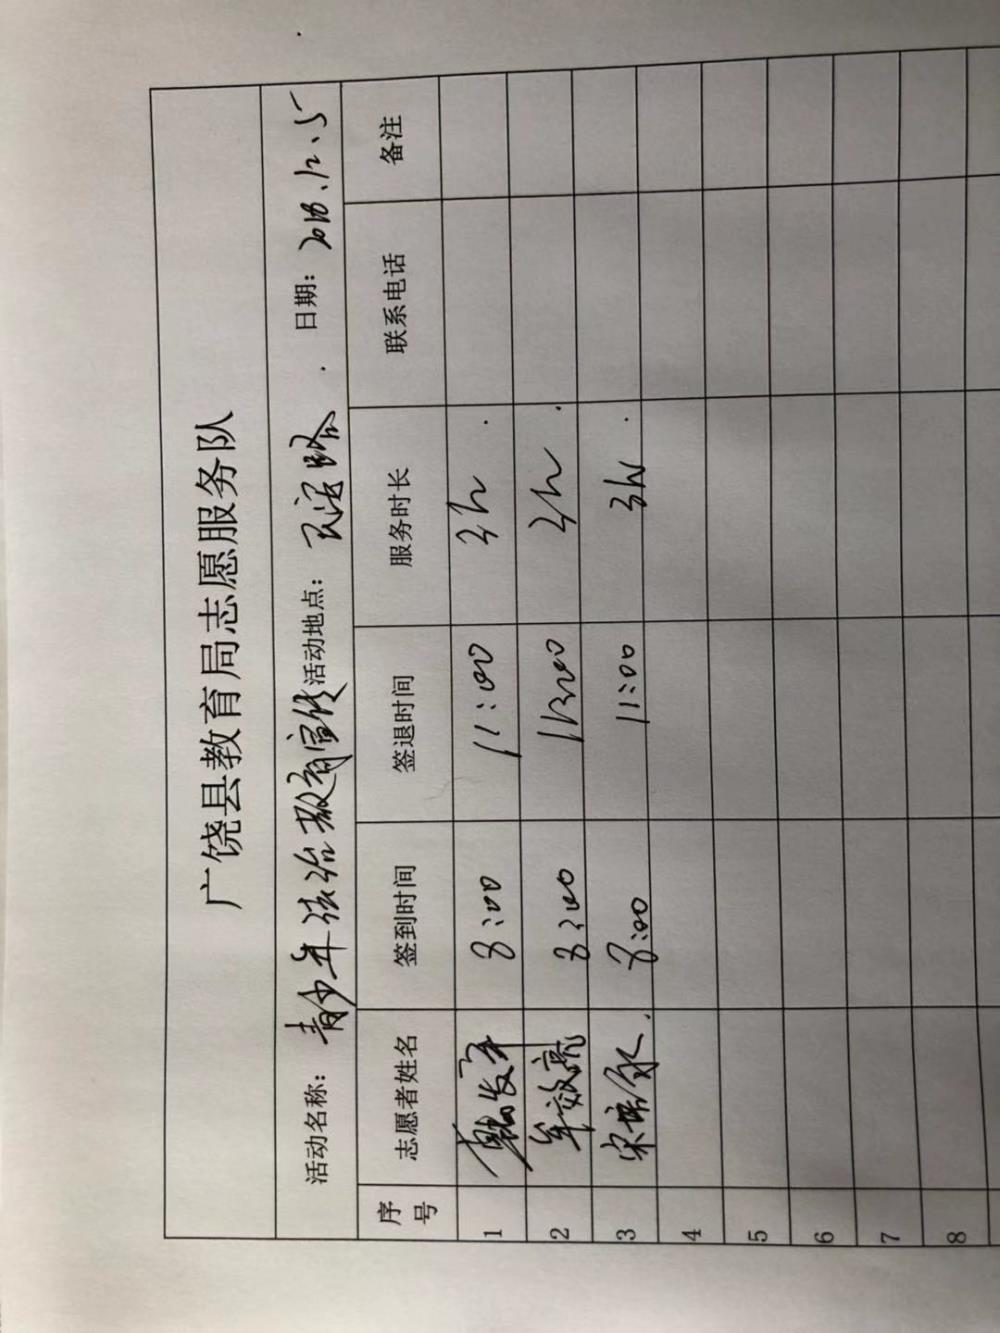 广饶县教育局志愿服务队
活动名称： 青少年法治教育宣传 活动地点： 乐安路 日期： 2018.12.5
序号 志愿者姓名 签到时间 签退时间 服务时长 联系电话 备注
1 8:00 11:00 3h
2 牟效亮 8:00 11:00 3h
3 8:00 11:00 3h
4
5
6
7
8